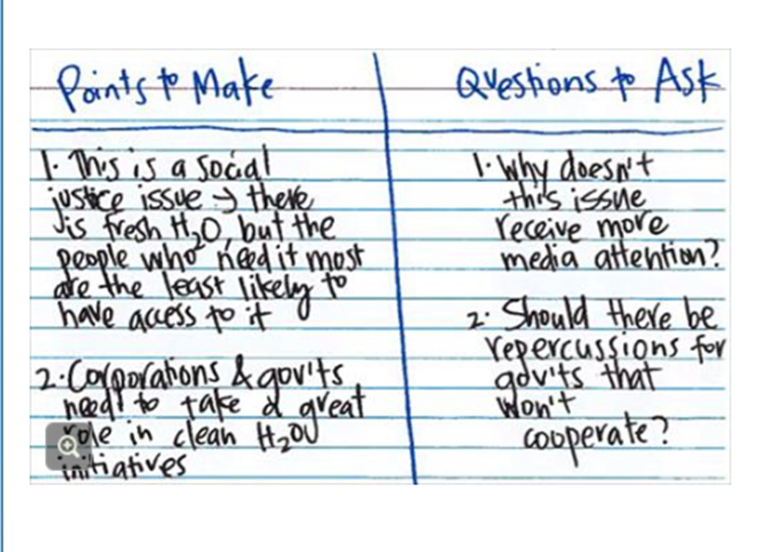 Points to Make
Questions to Ask
1. This is a social
justice issue → there
is fresh H₂O, but the
people who need it most
are the least likely to
have access to it
2. Corporations & gov'ts
need to take a great
role in clean H₂O
initiatives
1. Why doesn't
this issue
receive more
media attention?
2. Should there be
repercussions for
gov'ts that
won't
cooperate?